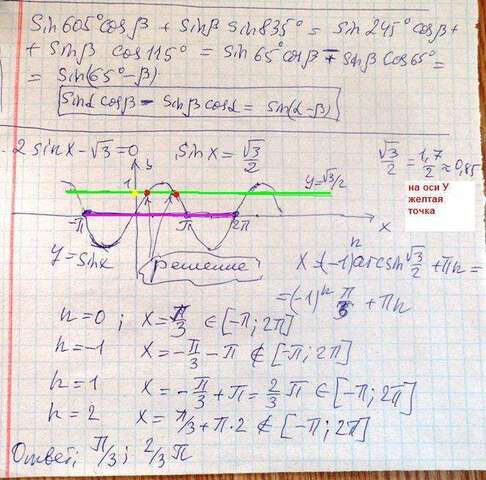 Sin605°cosβ + Sinβ Sin835° = Sin245°cosβ+
+ Sinβ cos115° = Sin65°cosβ - SinβCos65°=
= Sin(65°-β)
Sinαcosβ - Sinβcosα = Sin(α-β)
2sinx-√3=0 Sinx = √3/2 √3/2 = 1,7/2 ≈ 0,85
на оси У
желтая
точка
y
1
y=√3/2
-π π 2π x
y=Sinx решение
x=(-1)ⁿarcsin√3/2 + πn =
=(-1)ⁿ π/3 + πn
n=0; x=π/3 ∈[-π;2π]
n=-1 x=-π/3-π ∉[-π;2π]
n=1 x=-π/3+π=2/3π ∈[-π;2π]
n=2 x=π/3+π·2 ∉[-π;2π]
Ответ; π/3; 2/3π